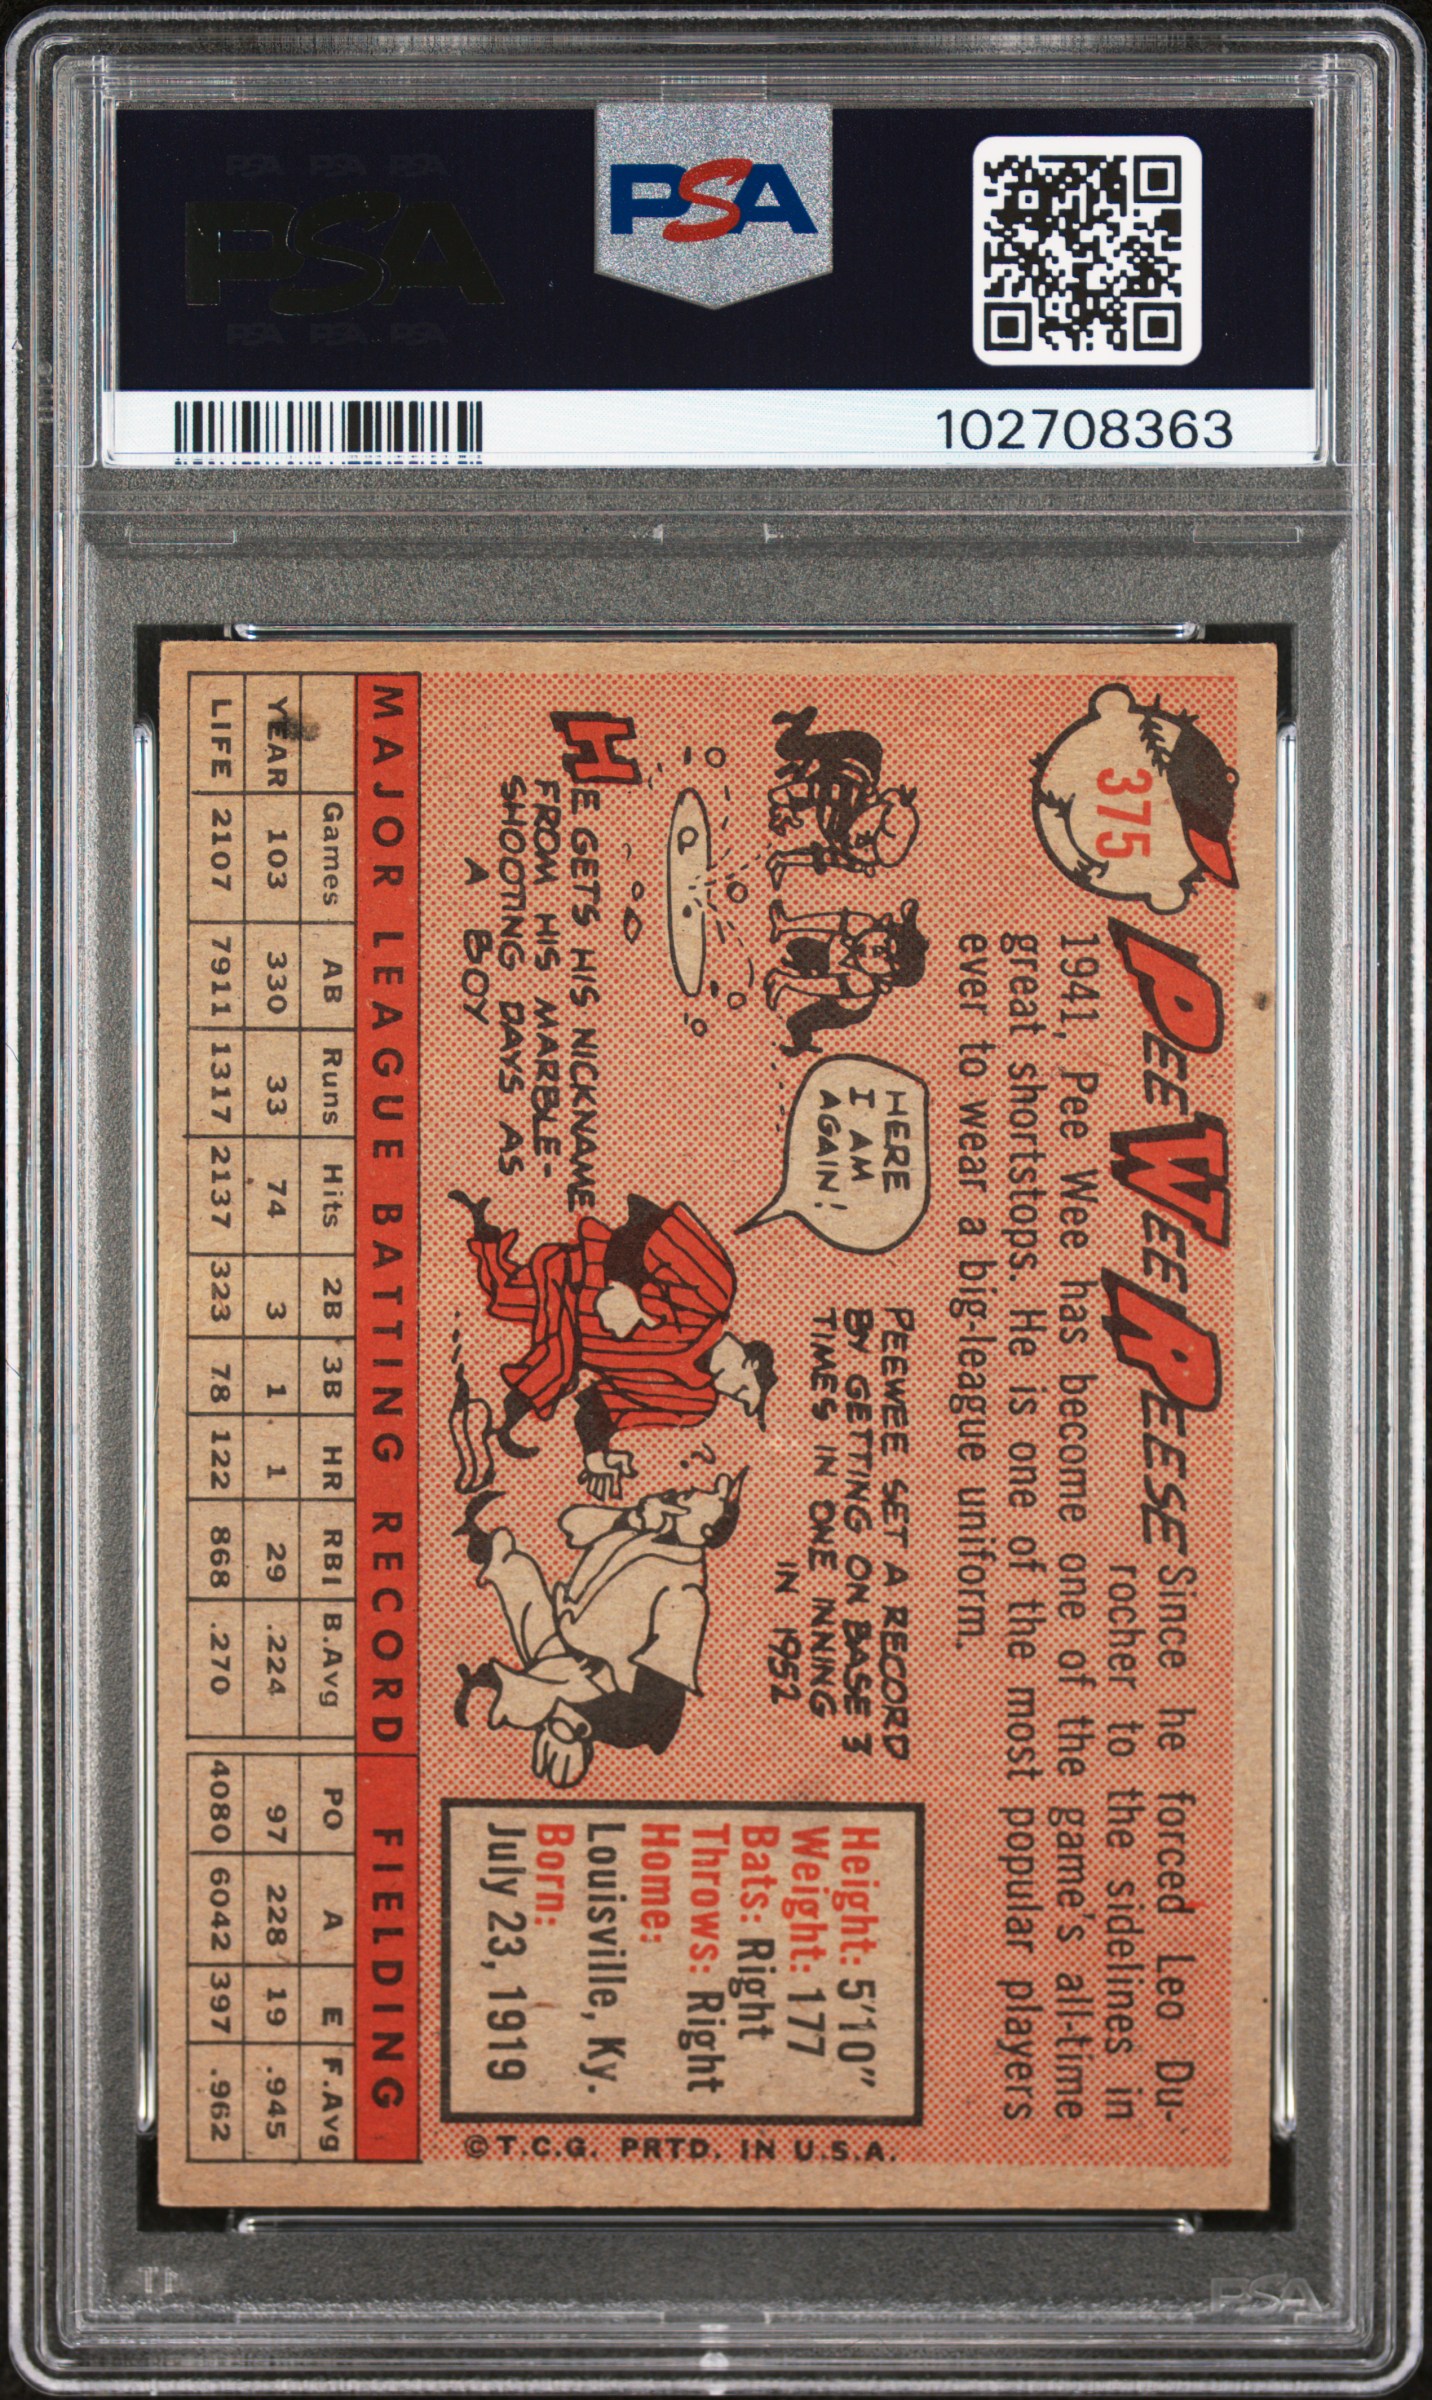 PSA PSA PSA
PSA
PSA PSA PSA
PSA
102708363
375
PEE WEE REESE
Since he forced Leo Du-
rocher to the sidelines in
1941, Pee Wee has become one of the game's all-time
great shortstops. He is one of the most popular players
ever to wear a big-league uniform.
HERE
I AM
AGAIN!
PEEWEE SET A RECORD
BY GETTING ON BASE 3
TIMES IN ONE INNING
IN 1952
HE GETS HIS NICKNAME
FROM HIS MARBLE-
SHOOTING DAYS AS
A BOY
?
Height: 5'10"
Weight: 177
Bats: Right
Throws: Right
Home:
Louisville, Ky.
Born:
July 23, 1919
©T.C.G. PRTD. IN U.S.A.
MAJOR LEAGUE BATTING RECORD FIELDING
Games AB Runs Hits 2B 3B HR RBI B.Avg PO A E F.Avg
YEAR 103 330 33 74 3 1 1 29 .224 97 228 19 .945
LIFE 2107 7911 1317 2137 323 78 122 868 .270 4080 6042 397 .962
PSA